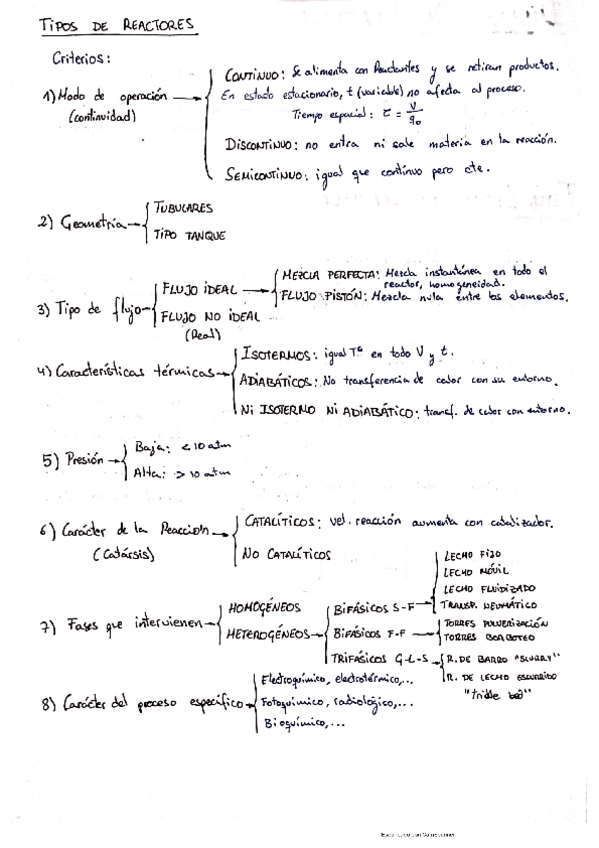 TIPOS DE REACTORES
Criterios:
1) Modo de operación (continuidad)
CONTINUO: Se alimenta con Reactantes y se retiran productos.
En estado estacionario, t (variable) no afecta al proceso.
Tiempo espacial: τ = V/q₀
DISCONTINUO: no entra ni sale materia en la reacción.
SEMICONTINUO: igual que continuo pero cte.
2) Geometría
TUBULARES
TIPO TANQUE
3) Tipo de flujo
FLUJO IDEAL
MEZCLA PERFECTA: Mezcla instantánea en todo el
reactor, homogeneidad.
FLUJO PISTÓN: Mezcla nula entre los elementos.
FLUJO NO IDEAL
(Real)
4) Características térmicas
ISOTERMOS: igual Tª en todo V y t.
ADIABÁTICOS: No transferencia de calor con su entorno.
Ni ISOTERMO Ni ADIABÁTICO: transf. de calor con entorno.
5) Presión
Baja: < 10 atm
Alta: > 10 atm
6) Carácter de la Reacción
(Catársis)
CATALÍTICOS: vel. reacción aumenta con catalizador.
NO CATALÍTICOS
7) Fases que intervienen
HOMOGÉNEOS
HETEROGÉNEOS
BIFÁSICOS S-F
LECHO FIJO
LECHO MÓVIL
LECHO FLUIDIZADO
TRANSP. NEUMÁTICO
BIFÁSICOS F-F
TORRES PULVERIZACIÓN
TORRES BORBOTEO
TRIFÁSICOS G-L-S
R. DE BARRO "SLURRY"
R. DE LECHO ESCURRIDO
"trickle bed"
8) Carácter del proceso específico
Electroquímico, electrotérmico,...
Fotoquímico, radiológico,...
Bioquímico,...
Escaneado con CamScanner